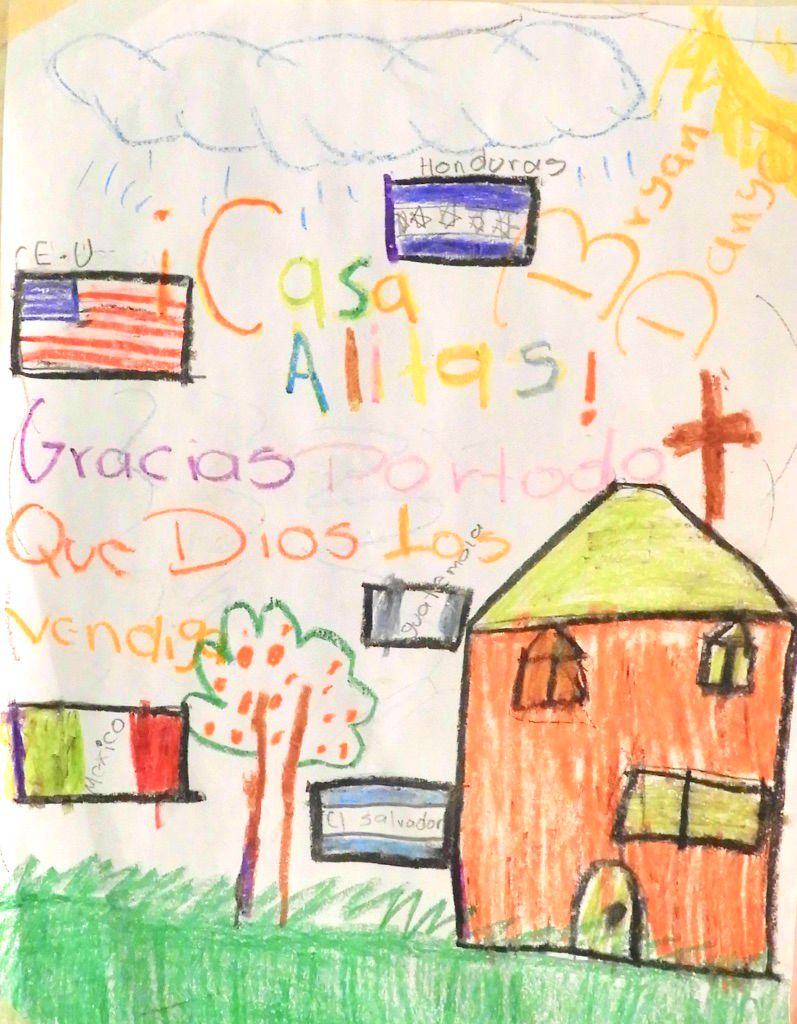 Honduras
E.U
Bryan
Danya
¡Casa
Alitas!
Gracias Por todo
Que Dios los
vendiga
guatemala
Mexico
el salvador